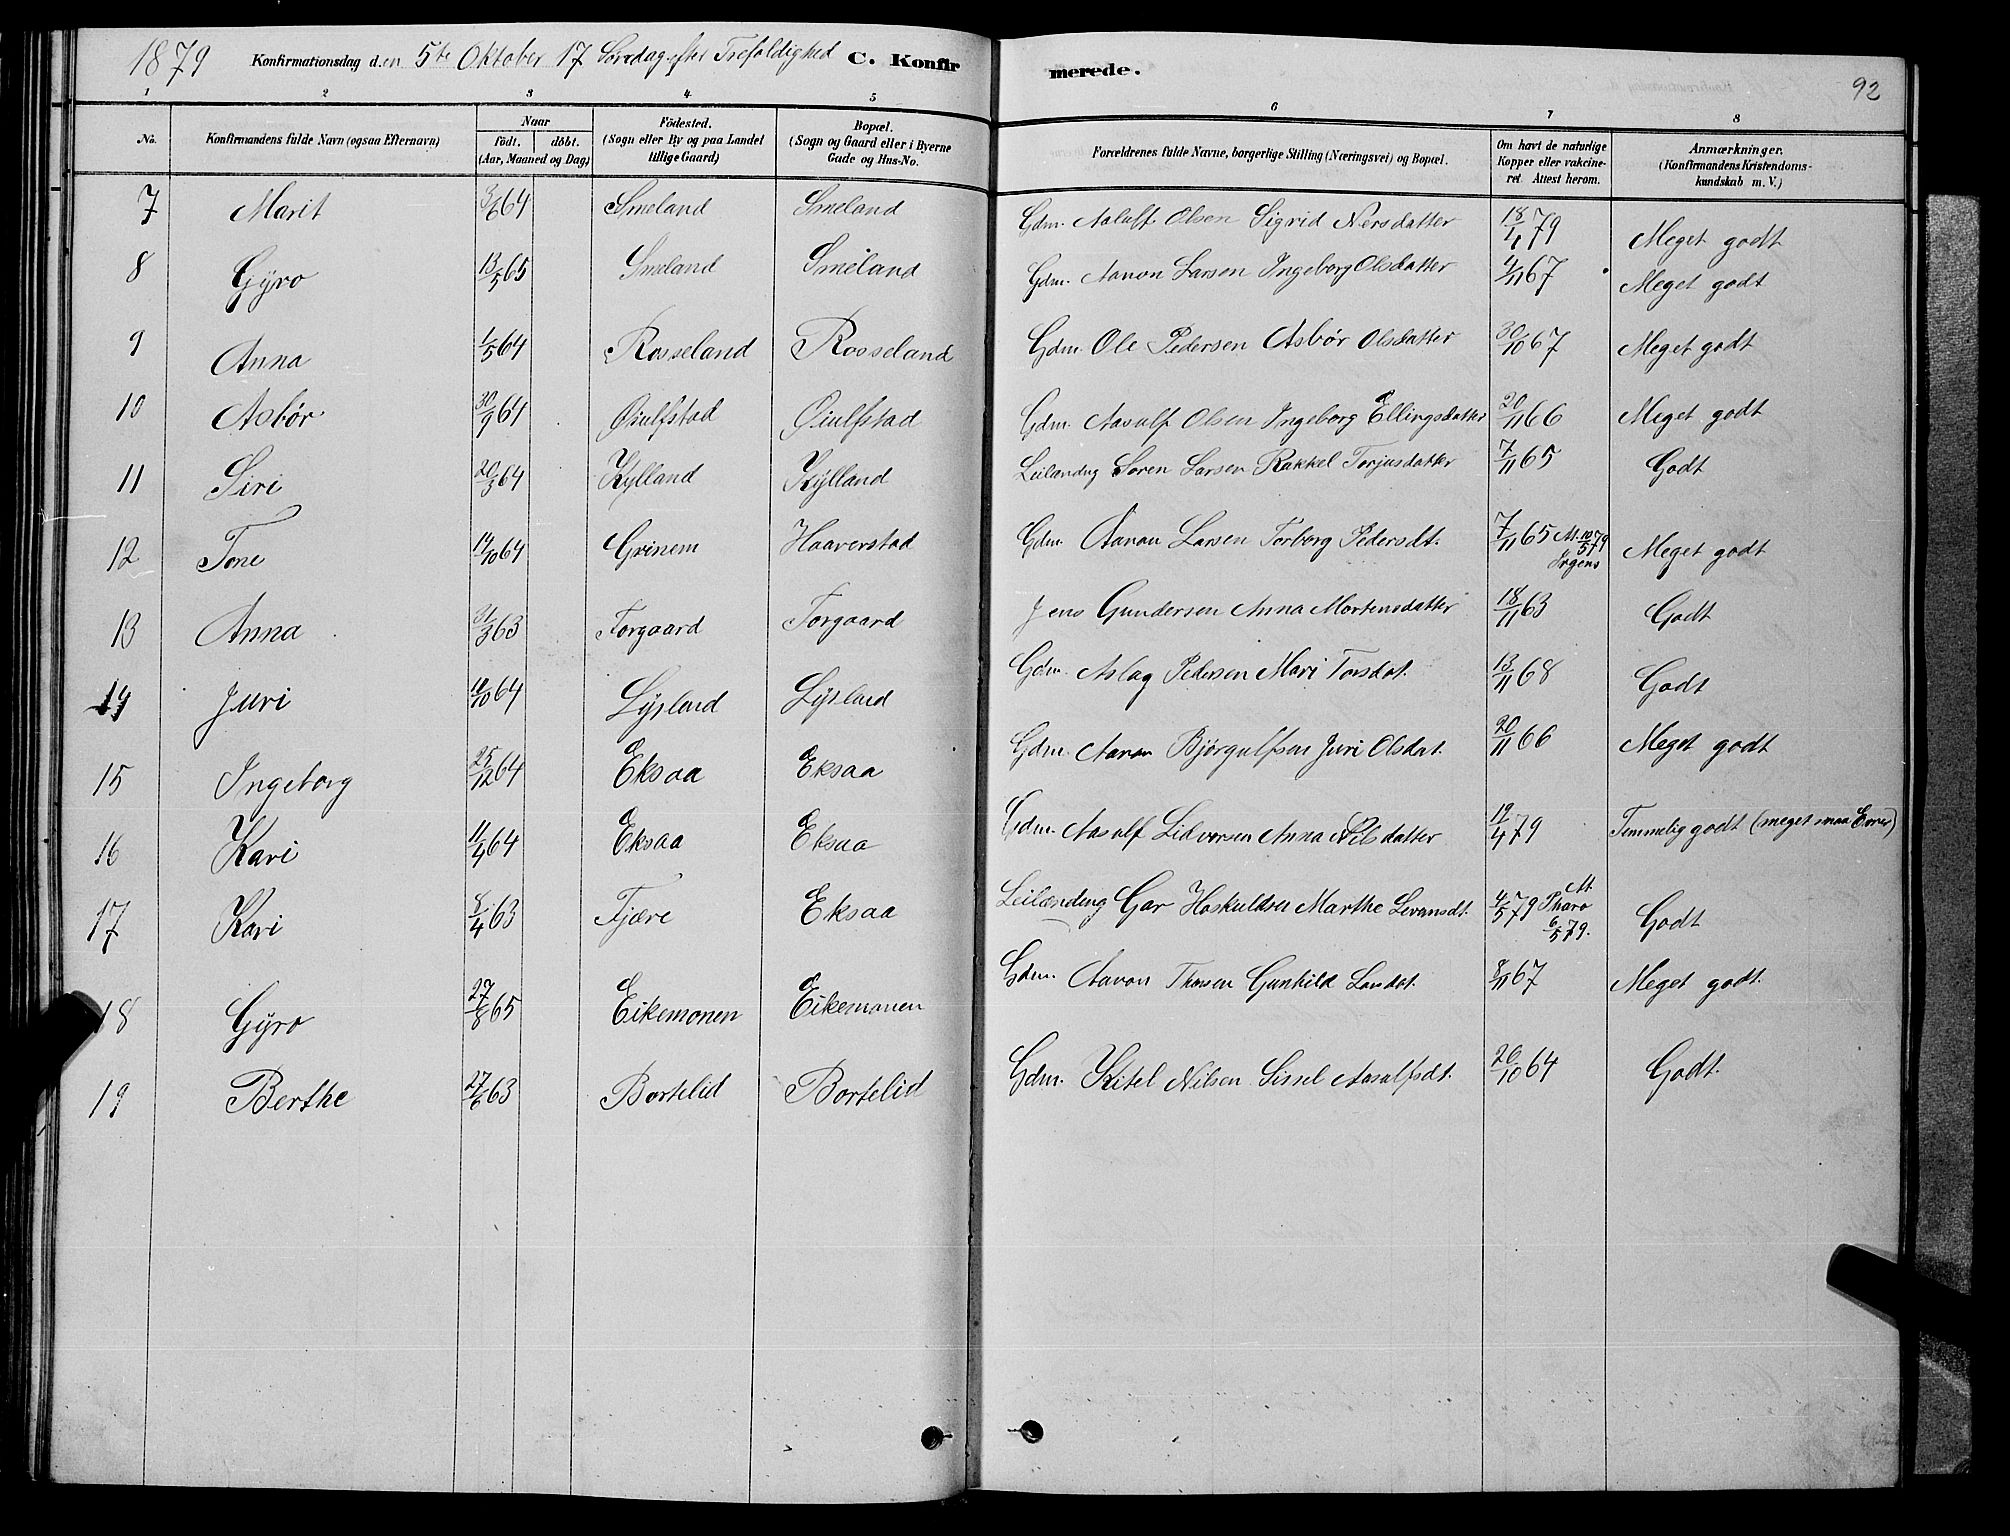 1879 Konfirmationsdag den 5te Oktober 17 Søndag efter Trefoldighed C. Konfirmerede. 92
1 2 3 4 5 6 7 8
No. Konfirmandens fulde Navn (ogsaa Efternavn) Naar født, døbt. (Aar, Maaned og Dag) Födested. (Sogn eller By og paa Landet tillige Gaard) Bopæl. (Sogn og Gaard eller i Byerne Gade og Hus-No. Forældrenes fulde Navne, borgerlige Stilling (Næringsvei) og Bopæl. Om havt de naturlige Kopper eller vakcineret. Attest herom. Anmærkninger. (Konfirmandens Kristendomskundskab m. V.)
7 Marit 3/6 64 Smeland Smeland Gdm. Aalulf Olsen Sigrid Nersdatter 18/4 79 Meget godt
8 Gyro 13/5 65 Smeland Smeland Gdm. Aanon Larsen Ingeborg Olsdatter 4/11 67 Meget godt
9 Anna 1/5 64 Rosseland Rosseland Gdm. Ole Pedersen Asbør Olsdatter 30/10 67 Meget godt
10 Asbør 30/9 64 Øiulfstad Øiulfstad Gdm. Aasulf Olsen Ingeborg Ellingsdatter 20/11 66 Meget godt
11 Siri 20/3 64 Kylland Kylland Leilændng Søren Larsen Rakkel Torjusdatter 7/11 65 Godt
12 Tone 14/10 64 Grinem Haaverstad Gdm. Aanon Larsen Torborg Pedersdt. 7/11 65 At. 10/5 79 Irgens Meget godt
13 Anna 31/3 63 Torgaard Torgaard Jens Gundersen Anna Mortensdatter 18/11 63 Godt
14 Juri 10/10 64 Lysland Lysland Gdm. Aslag Pedersen Mari Torsdat. 13/11 68 Godt
15 Ingeborg 25/12 64 Eksaa Eksaa Gdm. Aanon Bjørgulfsen Juri Olsdat. 20/11 66 Meget godt
16 Kari 11/4 64 Eksaa Eksaa Gdm. Aasulf Lidvorsen Anna Nilsdatter 19/4 79 Temmelig godt (meget smaa Evner)
17 Kari 8/4 63 Fjære Eksaa Leilænding Gar Hoskuldsen Marthe Levansdt. 4/5 79 At. Tharo 6/5 79. Godt
18 Gyro 27/8 65 Eikemonen Eikemonen Gdm. Aanon Thorsen Gunhild Larsdat. 8/11 67 Meget godt.
19 Berthe 27/6 63 Bortelid Bortelid Gdm. Kitel Nilsen Sissel Aasulfsdt. 26/10 64 Godt.